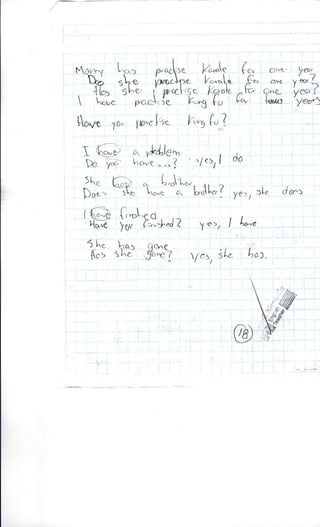 Marry has practise Karate for one year
Doe she practise Karate for one year?
Has she practise Karate for one year?
I have practise Kung fu for years
Have you practise Kung fu?
I have a problem
Do you have ...? yes, I do
She has a brother
Does she have a brother? yes, she does
I have finished
Have you finished? yes, I have
She has gone
Has she gone? Yes, she has.
18